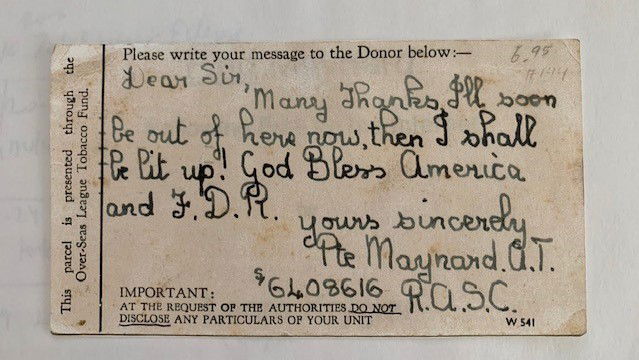 Please write your message to the Donor below:—
Dear Sir,
Many Thanks, I'll soon
be out of here now, then I shall
be lit up! God Bless America
and F.D.R.
yours sincerely
Pte Maynard. A.T.
S/6408616 R.A.S.C.
IMPORTANT:
AT THE REQUEST OF THE AUTHORITIES DO NOT
DISCLOSE ANY PARTICULARS OF YOUR UNIT
W 541
This parcel is presented through the
Over-Seas League Tobacco Fund.
6.95